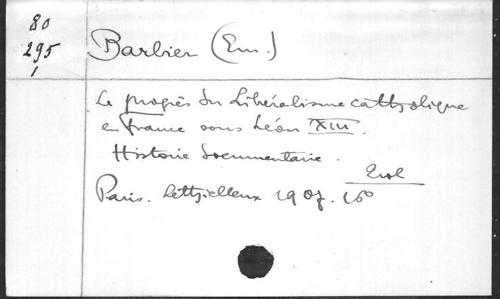 80
295
1
Barbier (Em.)
Le progrès du Libéralisme catholique
en France sous Léon XIII.
Histoire documentaire.
Paris. Lethielleux 1907. 16°